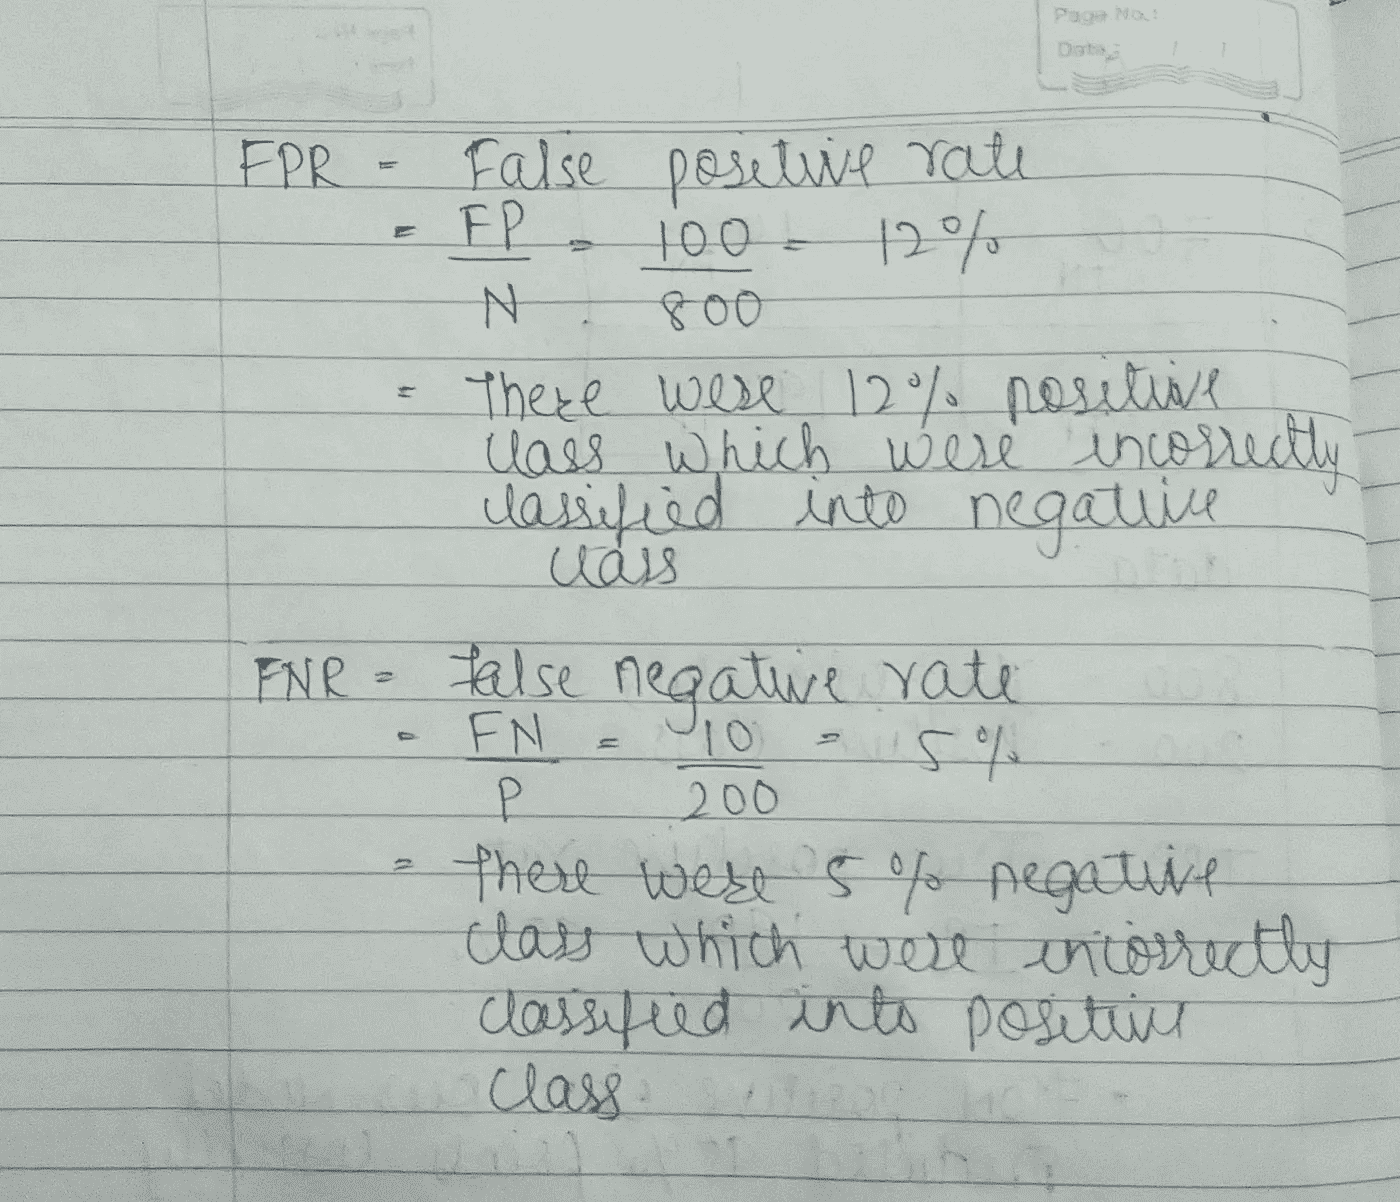 Page No.:
Date: / /
FPR = False positive rate
= FP = 100 = 12%
N 800
= There were 12% positive
class which were incorrectly
classified into negative
class
FNR = False negative rate
= FN = 10 = 5%
P 200
= There were 5% negative
class which were incorrectly
classified into positive
class